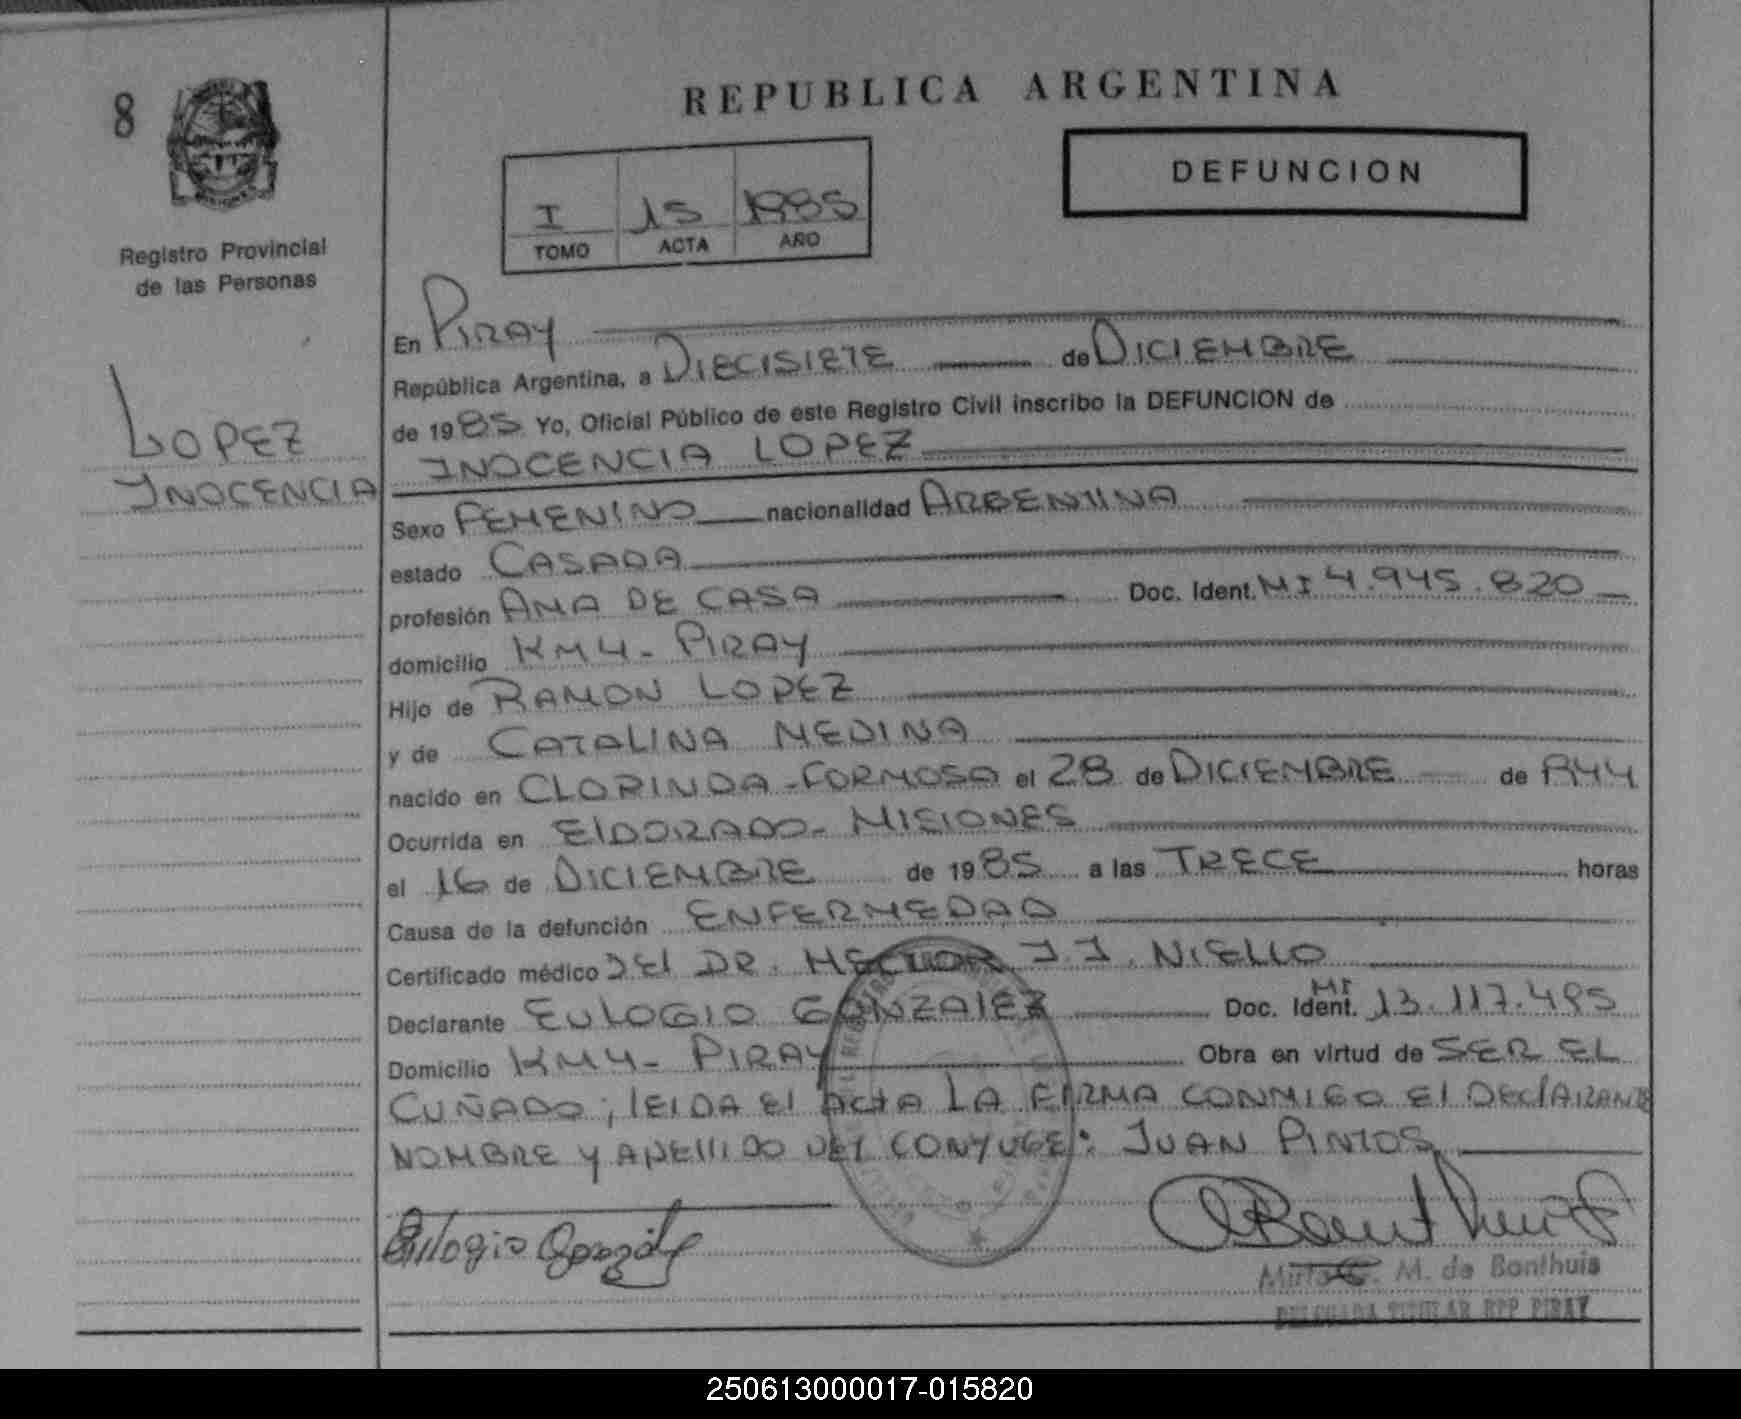 8
REPUBLICA ARGENTINA
DEFUNCION
I 15 1985
TOMO ACTA AÑO
Registro Provincial
de las Personas
LOPEZ
INOCENCIA
En PIRAY
República Argentina, a DIECISIETE de DICIEMBRE
de 1985 Yo, Oficial Público de este Registro Civil inscribo la DEFUNCION de
INOCENCIA LOPEZ
Sexo FEMENINO nacionalidad ARGENTINA
estado CASADA
profesión AMA DE CASA Doc. Ident. MI 4.945.820
domicilio KM4- PIRAY
Hijo de RAMON LOPEZ
y de CATALINA MEDINA
nacido en CLORINDA-FORMOSA el 28 de DICIEMBRE de 1944
Ocurrida en ElDORADO- MISIONES
el 16 de DICIEMBRE de 1985 a las TRECE horas
Causa de la defunción ENFERMEDAD
Certificado médico DEl DR. HECTOR J.J. NIELLO
Declarante EULOGIO GONZAlEZ Doc. Ident. MI 13.117.495
Domicilio KM4- PIRAY Obra en virtud de SER EL
CUÑADO; lEIDA El ActA LA FIRMA CONMIGO El DEClARANTE
NOMBRE Y APEllIDO DEL CONYUGE: JUAN PINTOS
Eulogio González
M. de Bonthuis
DELEGADA TITULAR RPP PIRAY
250613000017-015820